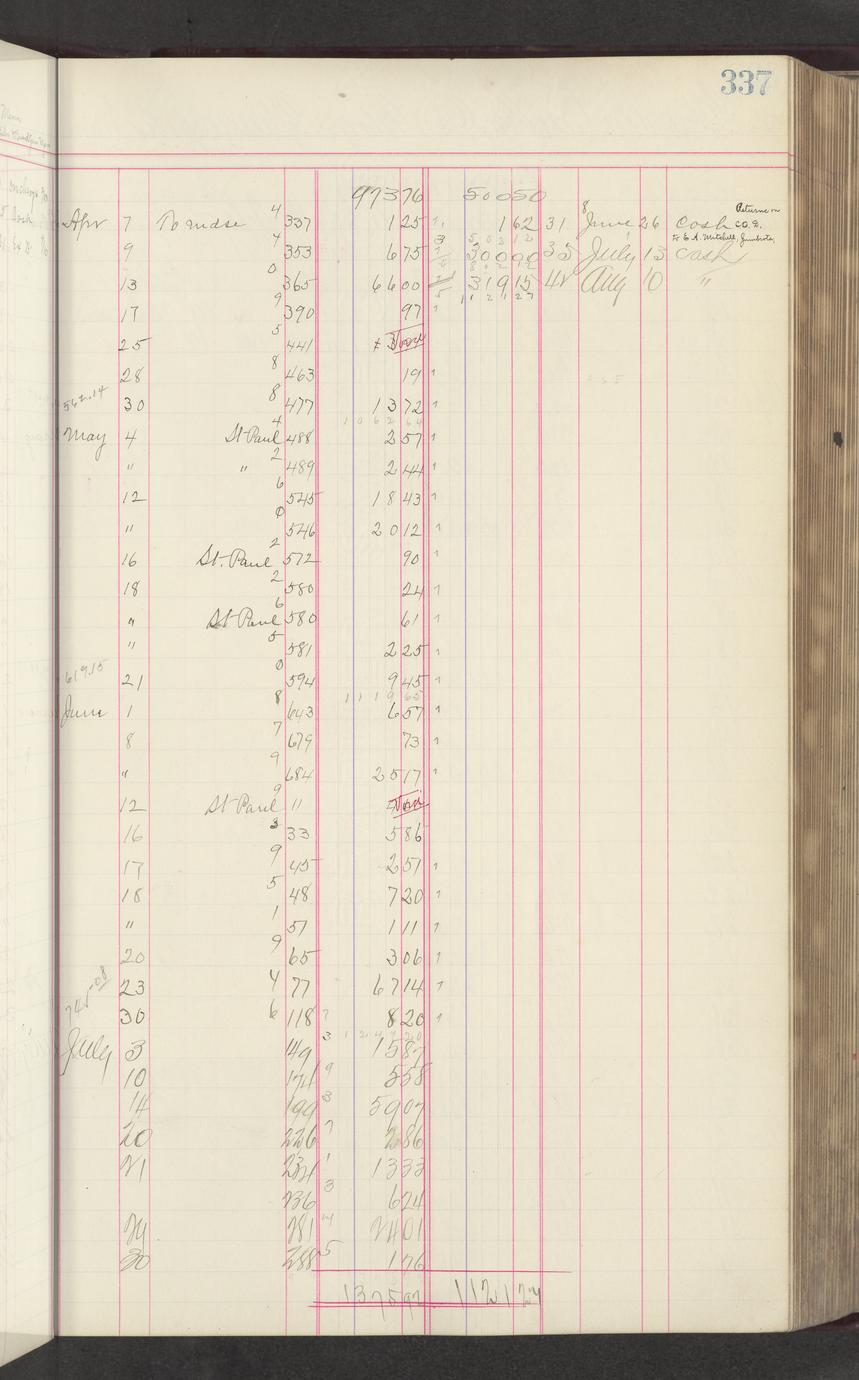 337
97376 50050
Apr 7 To mdse 4 337 1 25 1 62 31 8 June 26 cash Returns on CO. 8.
9 4 353 6 75 300 00 35 July 13 cash to E. A. Mitchell, Zumbrota,
13 0 365 66 00 319 15 42 Aug 10 "
11 2 1 27
17 9 390 97
25 5 441 Void
28 8 463 19
562.14 30 8 477 13 72
1 0 6 2 64
May 4 St Paul 4 488 2 57
" " 2 489 2 44
12 6 545 18 43
" 0 546 20 12
16 St. Paul 2 572 90
18 2 580 24
" St Paul 6 580 61
" 5 581 2 25
619.15 21 0 594 9 45
1 1 1 9 65
June 1 8 643 6 57
8 7 679 73
" 9 684 25 17
12 St Paul 9 " Void
16 3 33 5 86
17 9 45 2 57
18 5 48 7 20
" 1 57 1 11
20 9 65 3 06
23 4 77 67 14
748.08 30 6 118 8 20
July 3 149 3 15 87
10 174 9 5 58
14 199 3 59 07
20 226 7 2 86
21 234 1 13 33
236 3 6 24
24 281 4 24 01
30 288 5 1 76
1375 92 1121 27